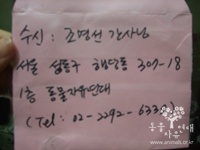 수신 : 조명선 간사님
서울 성동구 행당동 301-18
1층 동물자유연대
(Tel : 02-2292-633
동물자유연대
www.animals.or.kr